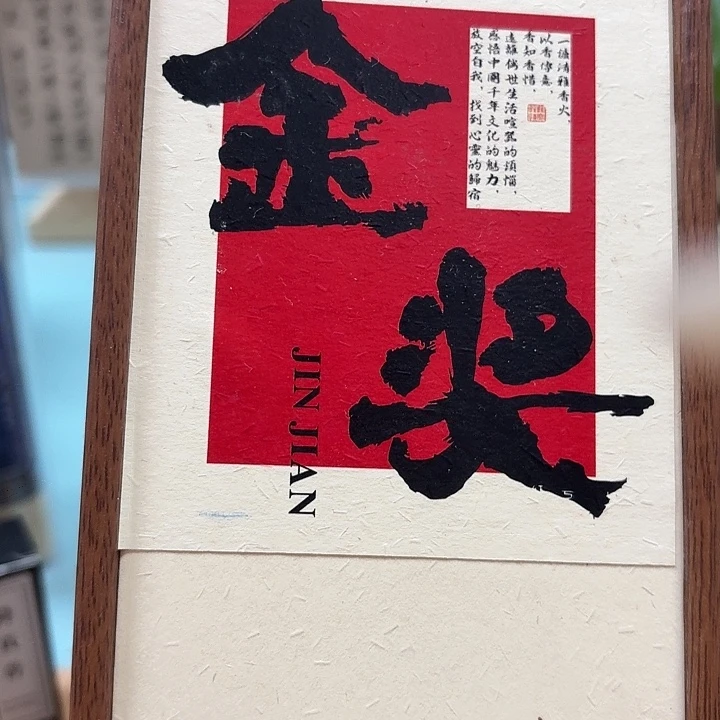 金
奖
一缕清雅香火，
以香传意，
香知香惜，
远离俗世生活喧嚣的烦恼，
感悟中國千年文化的魅力，
放空自我，找到心靈的歸宿。
JIN JIAN